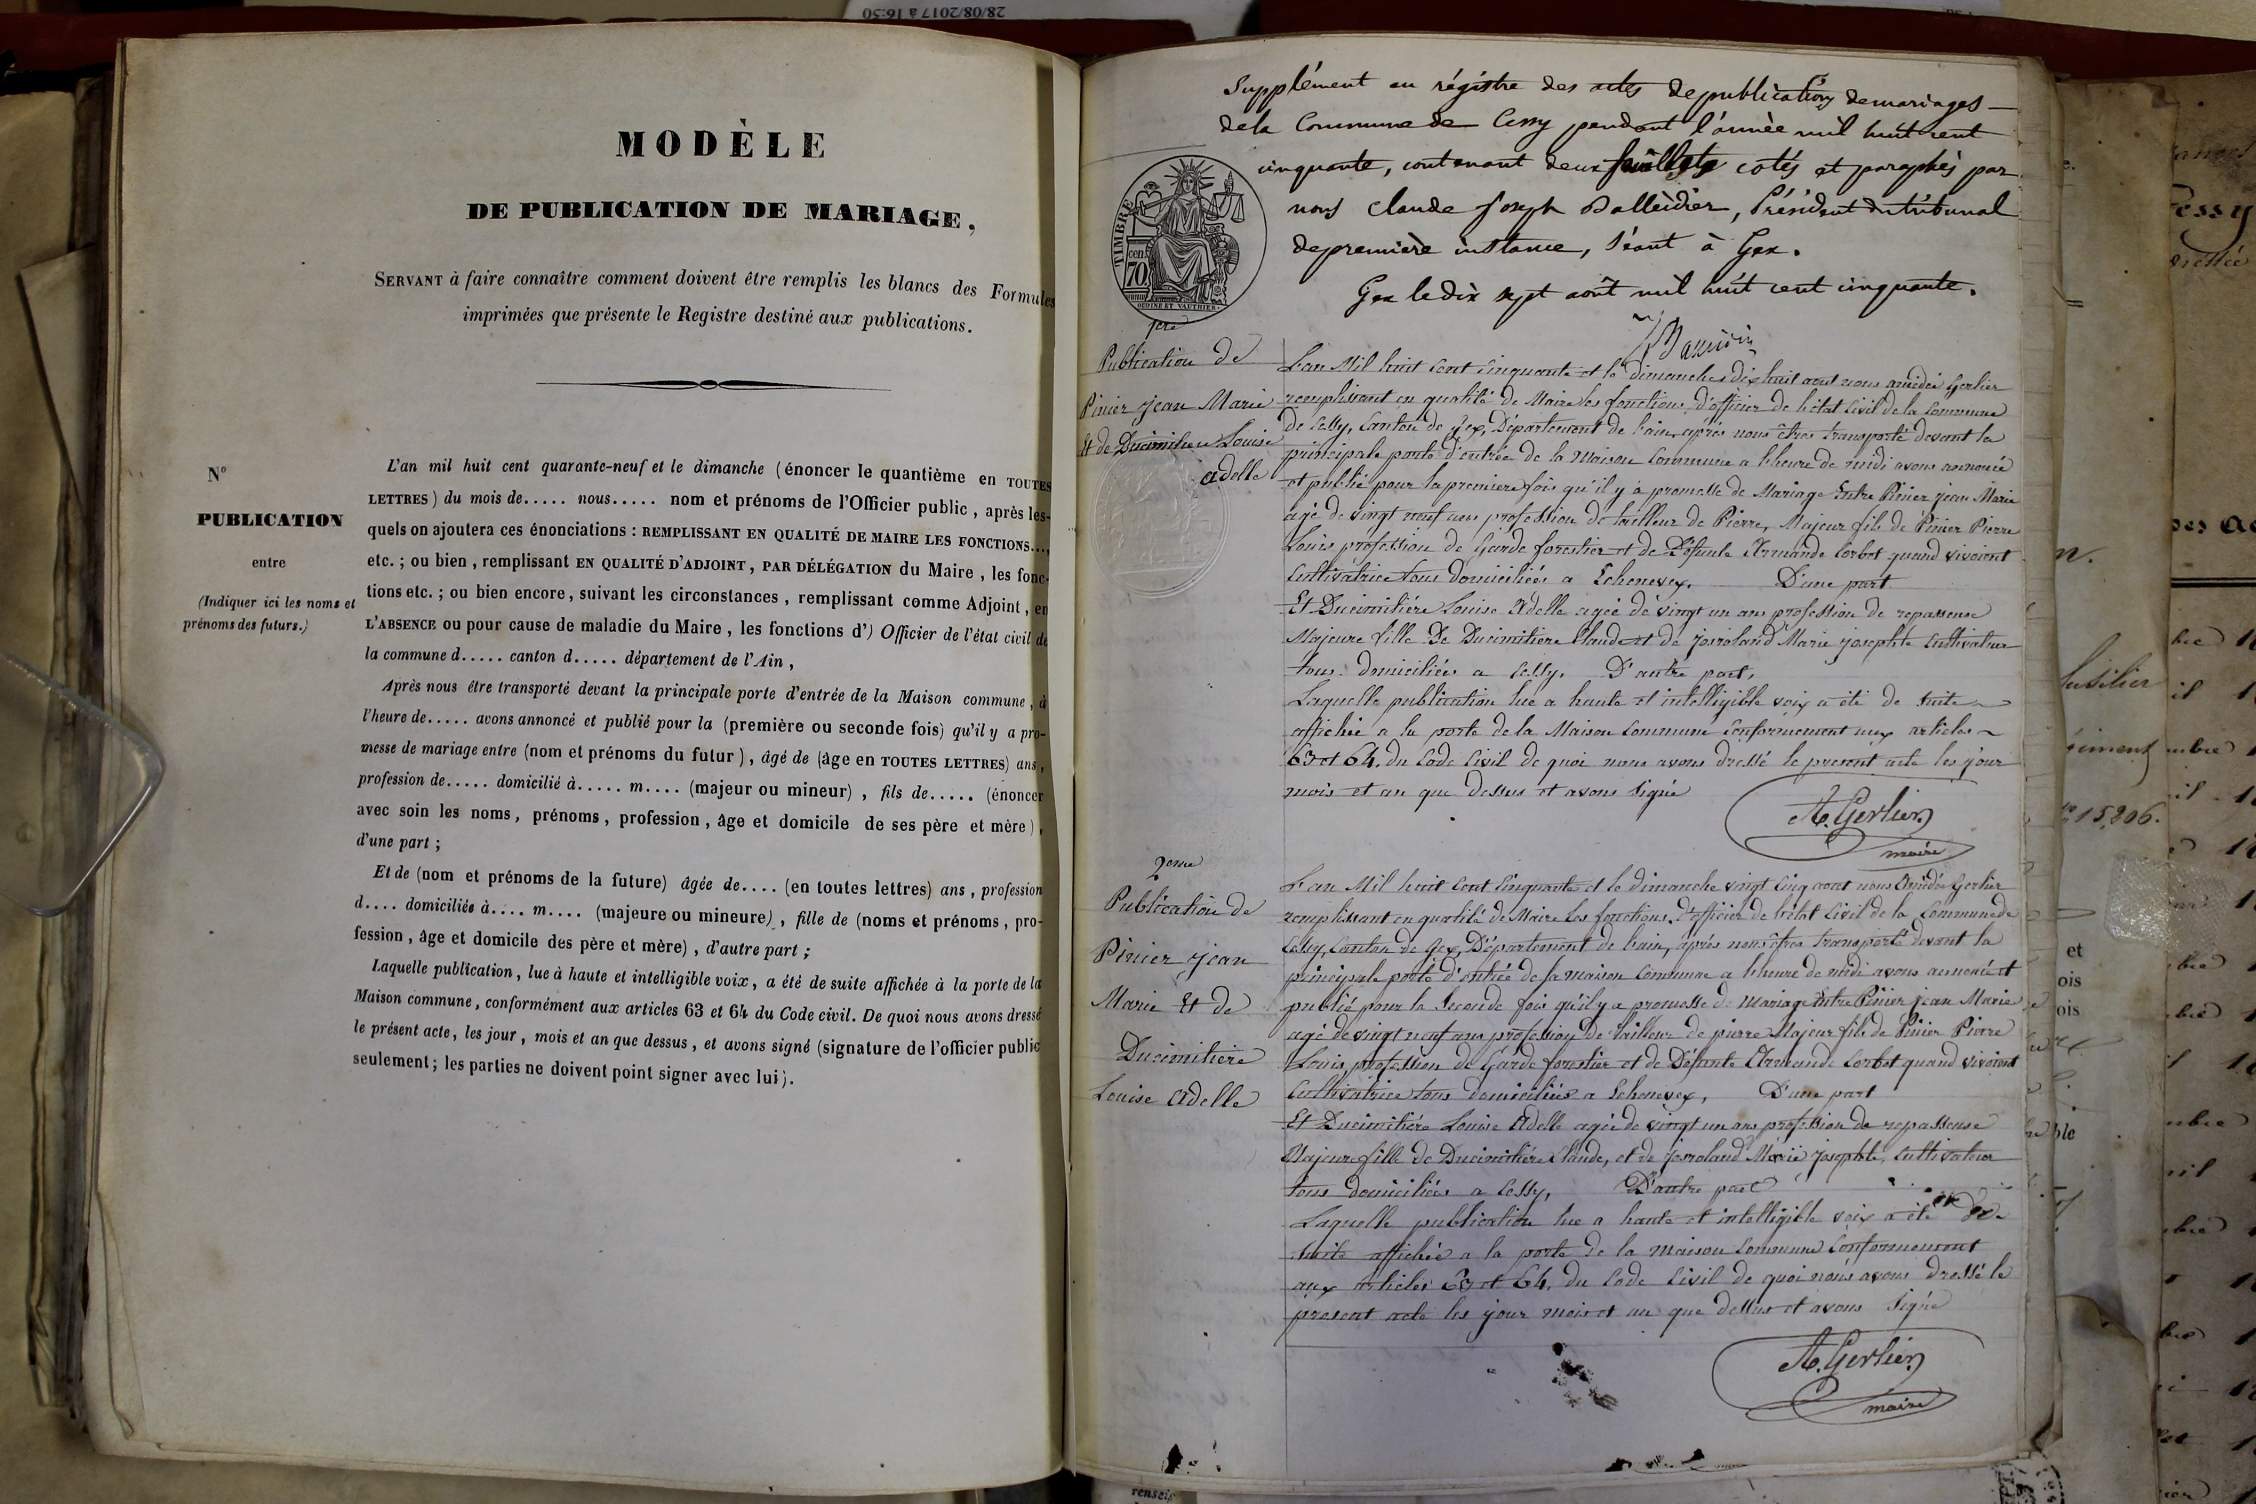 28/08/2017 à 16:50
MODÈLE
DE PUBLICATION DE MARIAGE,
SERVANT à faire connaître comment doivent être remplis les blancs des Formules
imprimées que présente le Registre destiné aux publications.
N°
PUBLICATION
entre
(Indiquer ici les noms et
prénoms des futurs.)
L'an mil huit cent quarante-neuf et le dimanche (énoncer le quantième en TOUTES
LETTRES) du mois de..... nous..... nom et prénoms de l'Officier public, après les-
quels on ajoutera ces énonciations : REMPLISSANT EN QUALITÉ DE MAIRE LES FONCTIONS...,
etc. ; ou bien, remplissant EN QUALITÉ D'ADJOINT, PAR DÉLÉGATION du Maire, les fonc-
tions etc. ; ou bien encore, suivant les circonstances, remplissant comme Adjoint, en
L'ABSENCE ou pour cause de maladie du Maire, les fonctions d') Officier de l'état civil de
la commune d..... canton d..... département de l'Ain,
Après nous être transporté devant la principale porte d'entrée de la Maison commune, à
l'heure de..... avons annoncé et publié pour la (première ou seconde fois) qu'il y a pro-
messe de mariage entre (nom et prénoms du futur), âgé de (âge en TOUTES LETTRES) ans,
profession de..... domicilié à..... m.... (majeur ou mineur), fils de..... (énoncer
avec soin les noms, prénoms, profession, âge et domicile de ses père et mère),
d'une part ;
Et de (nom et prénoms de la future) âgée de.... (en toutes lettres) ans, profession
d.... domiciliée à.... m.... (majeure ou mineure), fille de (noms et prénoms, pro-
fession, âge et domicile des père et mère), d'autre part ;
Laquelle publication, lue à haute et intelligible voix, a été de suite affichée à la porte de la
Maison commune, conformément aux articles 63 et 64 du Code civil. De quoi nous avons dressé
le présent acte, les jour, mois et an que dessus, et avons signé (signature de l'officier public
seulement ; les parties ne doivent point signer avec lui).
Supplément au régistre des actes de publications de mariages
de la Commune de Cessy pendant l'année mil huit cent
cinquante, contenant deux feuillets cotés et paraphés par
nous Claude Joseph Balleidier, Président du tribunal
de première instance, séant à Gex.
Gex le dix sept août mil huit cent cinquante.
TIMBRE
70 cen.
OUDINÉ ET VAUTHIER
1ere
Publication de
Pinier jean Marie
Et de Ducimitiere Louise
Adelle
L'an Mil huit Cent Cinquante et le dimanche dix huit aout nous amédée Gerlier
remplissant en qualité de Maire les fonctions d'officier de l'état Civil de la Commune
De Cessy, Canton de Gex, Département de l'ain, après nous êtres transporté devant la
principale porte d'entrée de la Maison Commune a l'heure de midi avons annoncé
et publié pour la premiere fois qu'il y a promesse de Mariage Entre Pinier jean Marie
agé de vingt neuf ans profession de tailleur de Pierre, Majeur fils de Pinier Pierre
Louis profession de Garde forestier et de Défunte Armande Corbet quand vivoient
Cultivatrice tous domiciliés a Echenevex. D'une part
Et Ducimitiére Louise Adelle agée de vingt un ans profession de repasseuse
Majeure fille De Ducimitiere Claude et de josroland Marie josephte Cultivateur
tous domiciliés a Cessy. D'autre part,
Laquelle publication lue a haute et intelligible voix a été de suite
affichée a la porte de la Maison Commune Conformement aux articles
63 et 64. du Code Civil de quoi nous avons dressé le present acte les jour
mois et an que dessus et avons signé
A. Gerlier
maire
2eme
Publication de
Pinier jean
Marie Et de
Ducimitiere
Louise Adelle
L'an Mil huit Cent Cinquante et le dimanche vingt Cinq aout nous Amédée Gerlier
remplissant en qualité de Maire Les fonctions d'officier de l'état Civil de la Commune de
Cessy, Canton de Gex, Département de l'ain, après nous êtres transporté devant la
principale porte d'entrée de la maison Commune a l'heure de midi avons annoncé et
publié pour la Seconde fois qu'il y a promesse de mariage Entre Pinier jean Marie
agé de vingt neuf ans profession de tailleur de pierre Majeur fils de Pinier Pierre
Louis, profession de Garde forestier et de Défunte Armande Corbet quand vivoient
Cultivatrice tous domiciliés a Echenevex, D'une part
Et Ducimitiére Louise Adelle agée de vingt un ans profession de repasseuse
Majeure fille de Ducimitiére Claude, et de josroland Marie josephte, Cultivateur
tous domiciliés a Cessy, D'autre part
Laquelle publication lue a haute et intelligible voix a été de
suite affichée a la porte de la maison Commune Conformement
aux articles 63 et 64. du Code Civil de quoi nous avons dressé le
present acte les jour mois et an que dessus et avons signé
A. Gerlier
maire
15,206.
et
ois
ois
ble
renseig